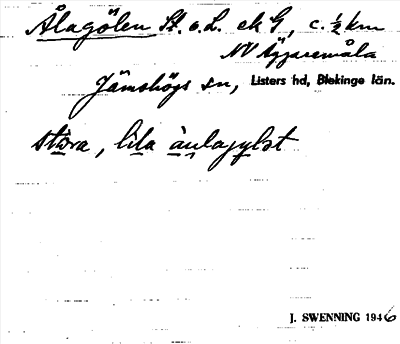 Ålagölen St. o. L. ek G, c. ½ km
NV Äggaremåla
Jämshögs sn, Listers hd, Blekinge län.
stora, lila
J. SWENNING 1946